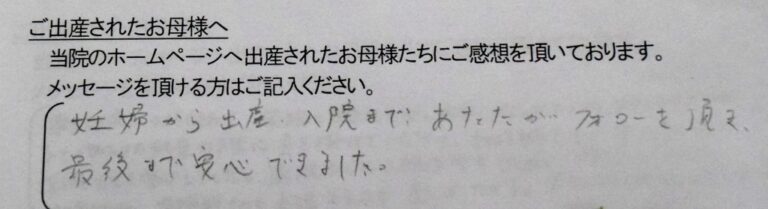 ご出産されたお母様へ
当院のホームページへ出産されたお母様たちにご感想を頂いております。
メッセージを頂ける方はご記入ください。
妊婦から出産、入院まで、あたたかいフォローを頂き、
最後まで安心できました。